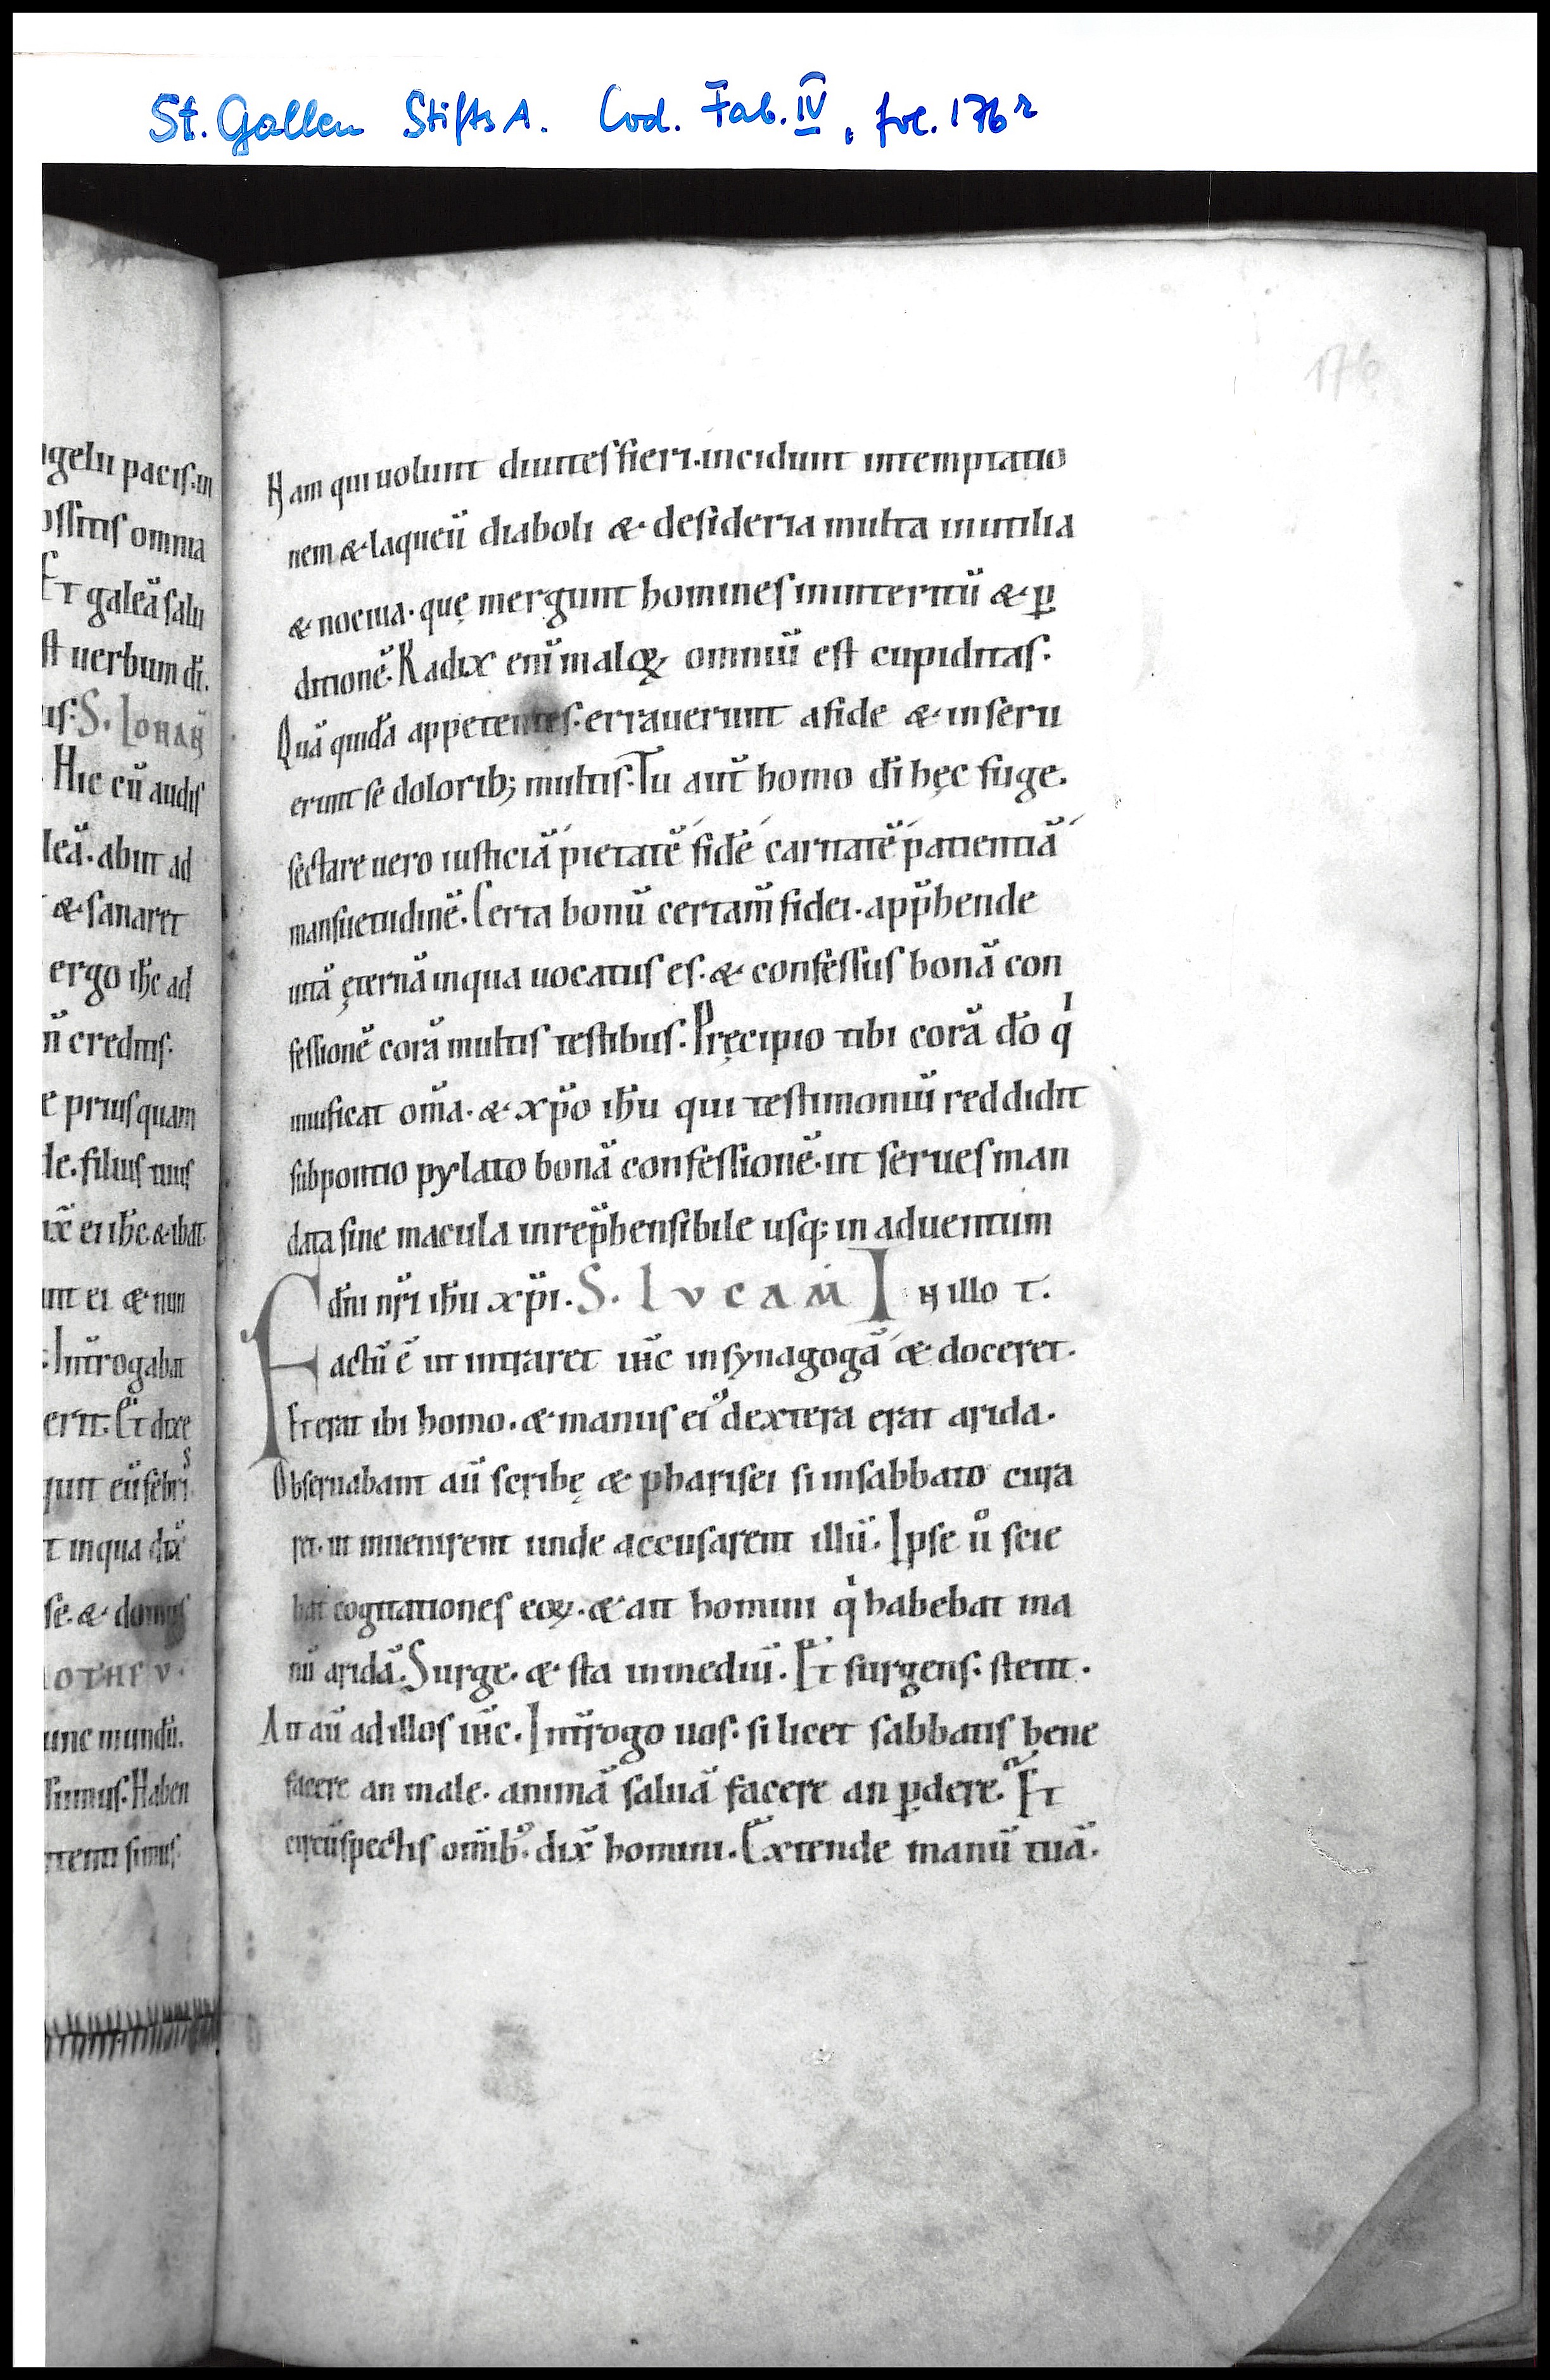 St. Gallen StiftsA. Cod. Fab. IV, fol. 176r
176
ngelii pacis. in
ossitis omnia
Et galeā salu
st uerbum dī.
us. S. IOHAN̄
. Hic cū audis
leā. abiit ad
& sanaret
ergo ih̄c ad
n̄ creditis.
e priusquam
le. filius tuus
ix̄ ei ih̄c & ibat
nt ei & nun
. Int̄rogabat
erit. Et dixe
quit eū febris
t in qua dix̄
se. & domus
OTHEV.
unc mundū.
simus. Haben
tenti simus
Nam qui uolunt diuites fieri. incidunt in temptatio
nem & laqueū diaboli & desideria multa inutilia
& nociua. quę mergunt homines in interitū & p̄
ditionē. Radix enī maloꝝ omniū est cupiditas.
Quā quidā appetentes. errauerunt a fide & inseru
erunt se dolorib; multis. Tu aūt homo dī hęc fuge.
sectare uero iusticiā pietatē fidē caritatē patientiā
mansuetudinē. Certa bonū certam̄ fidei. appͤhende
uitā ęternā in qua uocatus es. & confessus bonā con
fessionē corā multis testibus. Pręcipio tibi corā dō qͥ
uiuificat om̄a. & xp̄o ih̄u qui testimoniū reddidit
sub pontio pylato bonā confessionē. ut serues man
data sine macula inrep̄hensibile usq; in aduentum
dn̄i nr̄i ih̄u xp̄i. S. LVCAM IN illo t.
Factū ē ut intraret ih̄c in synagogā & doceret.
Et erat ibi homo. & manus eiꝰ dextera erat arida.
Obseruabant aū scribę & pharisei si in sabbato cura
ret. ut inuenirent unde accusarent illū. Ipse uͦ scie
bat cogitationes eoꝝ. & ait homini qͥ habebat ma
nū aridā. Surge. & sta in mediū. Et surgens. stetit.
Ait aū ad illos ih̄c. Int̄rogo uos. si licet sabbatis bene
facere an male. animā saluā facere an ꝑdere. Et
circūspectis om̄ibꝰ. dix̄ homini. Extende manū tuā.